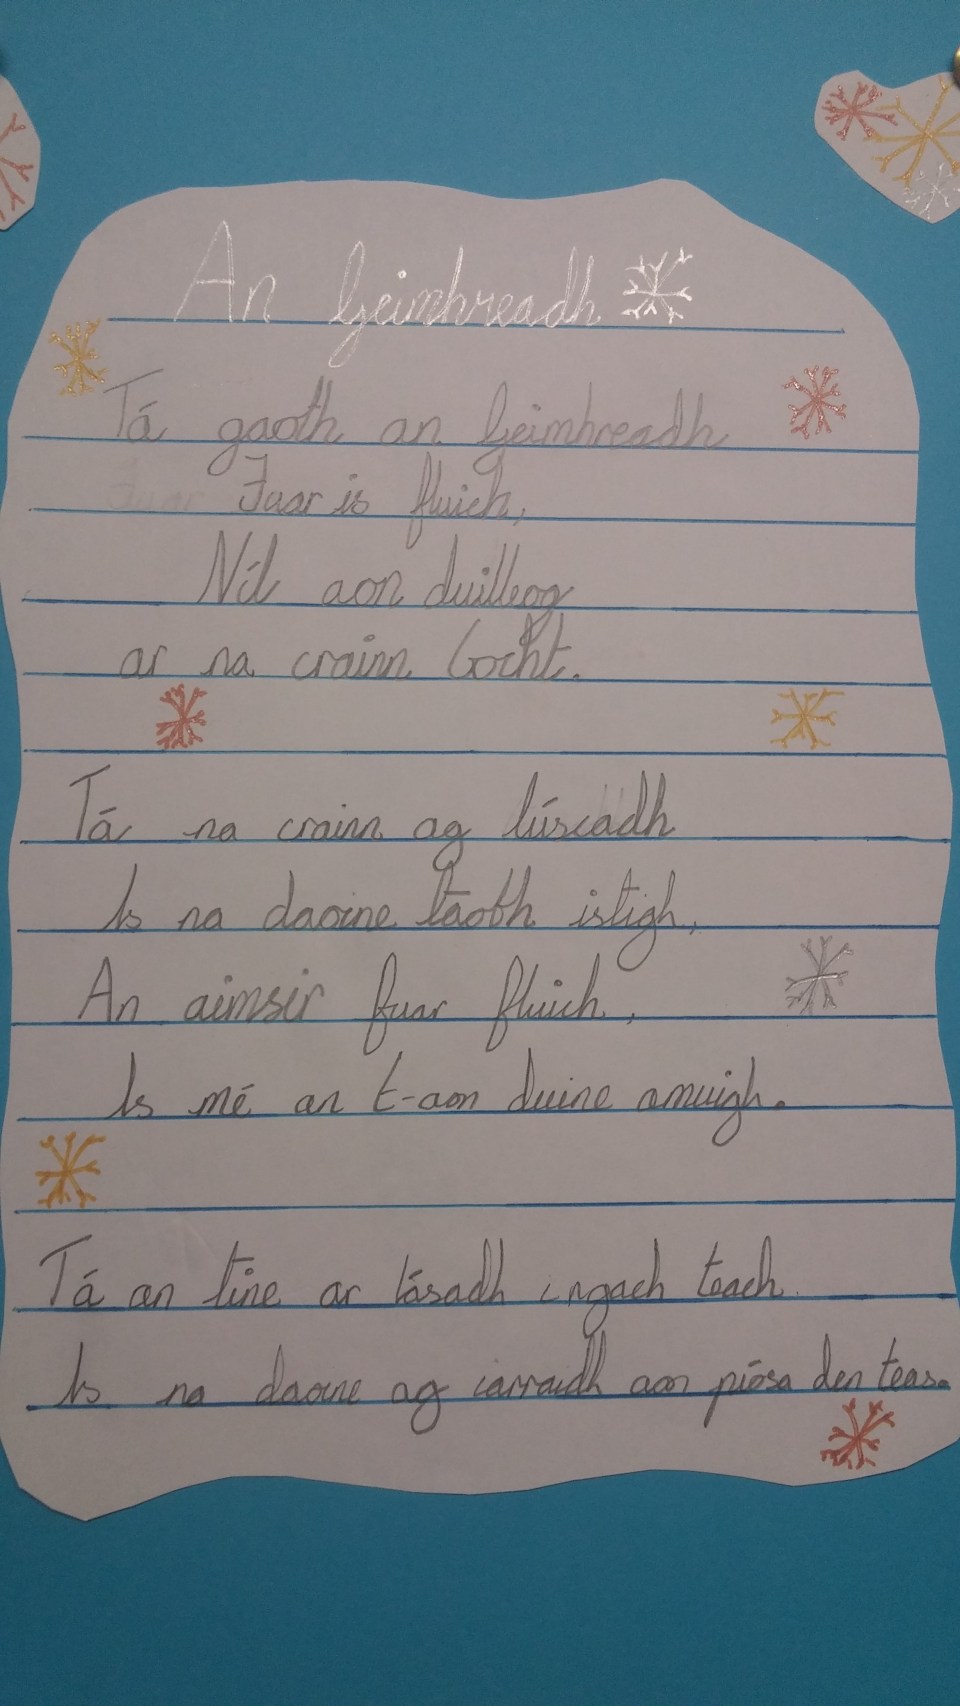 An Geimhreadh
Tá gaoth an Geimhreadh
Fuar Fuar is fluich,
Níl aon duilleog
ar na crainn bocht.
Tá na crainn ag lúscadh
Is na daoine taobh istigh,
An aimsir fuar fluich,
Is mé an t-aon duine amuigh.
Tá an tine ar lásadh i ngach teach
Is na daoine ag iarraidh aon píosa den teas.